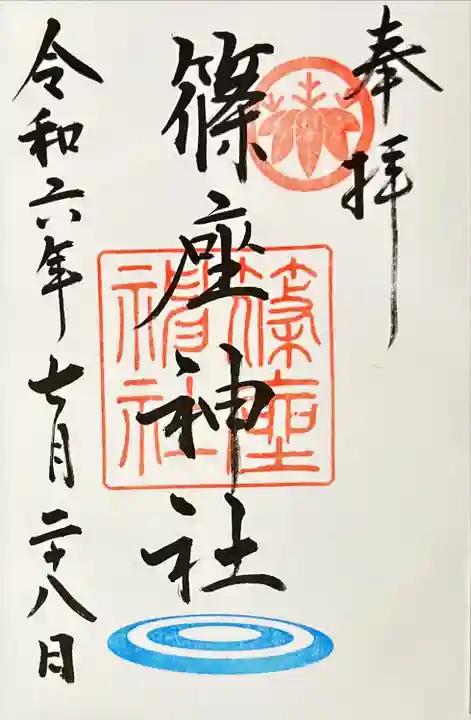 奉拝
篠座神社
篠座
神社
令和六年七月二十八日